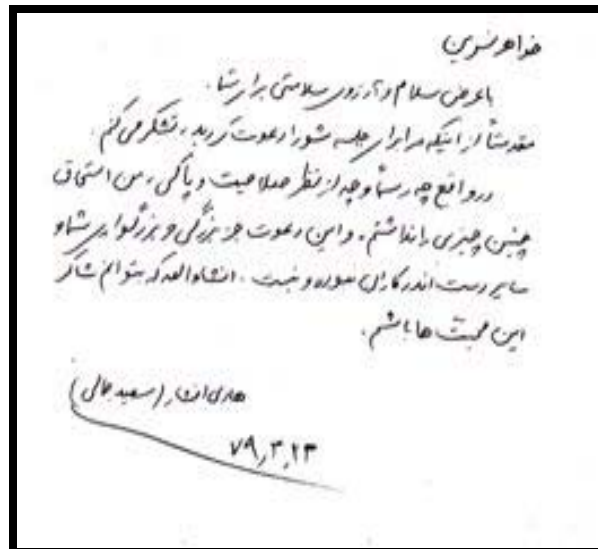 خواهر نسرین
با عرض سلام و آرزوی سلامتی برای شما.
مقدمتاً از اینکه مرا برای جلسه شورا دعوت کردید، تشکر می‌کنم.
در واقع چه رسماً و چه از نظر صلاحیت و پاکی، من استحقاق
چنین چیزی را نداشتم. و این دعوت جز بزرگی و بزرگواری شما و
سایر دست اندر کاران نبوده و نیست. انشاءالله که بتوانم شاکر
این محبت ها باشم.
هادی افشار (سعید جمالی)
۷۹٫۳٫۲۳